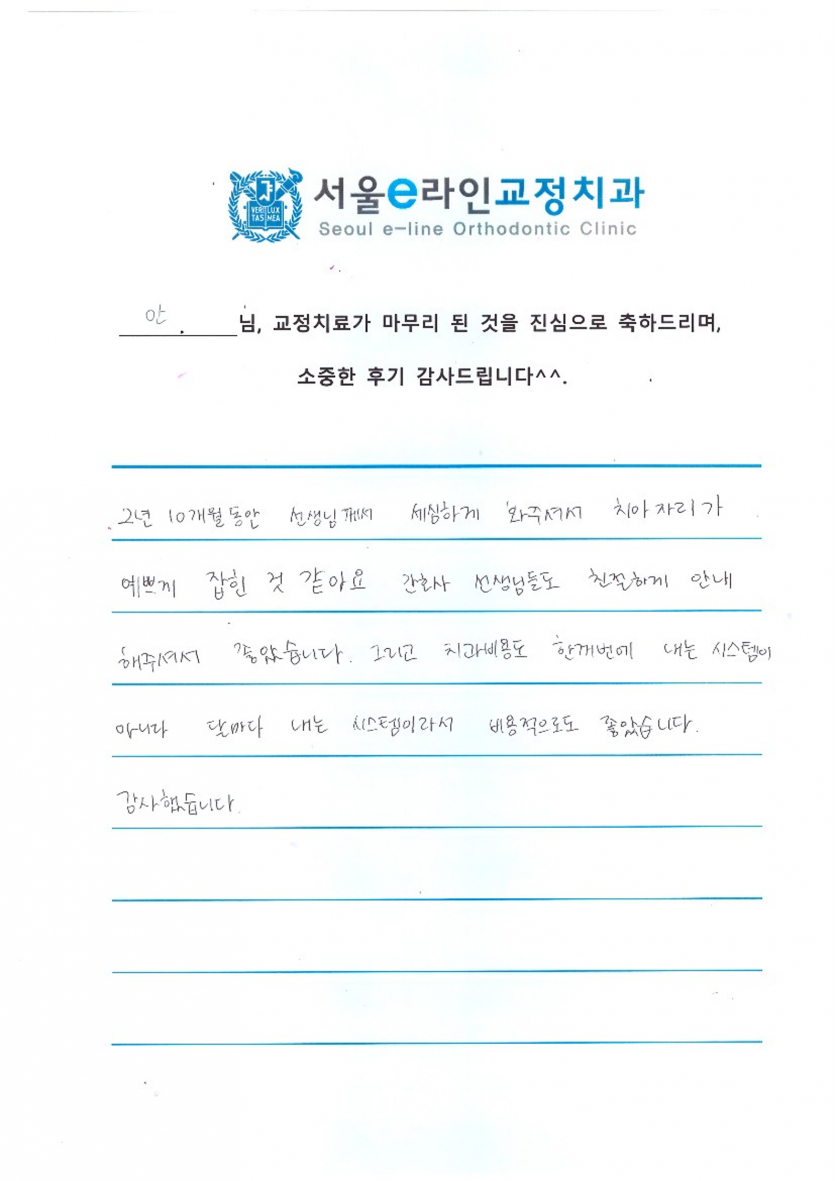 VERI LUX
TAS MEA
서울e라인교정치과
Seoul e-line Orthodontic Clinic
안. 님, 교정치료가 마무리 된 것을 진심으로 축하드리며,
소중한 후기 감사드립니다^^.
2년 10개월동안 선생님께서 세심하게 봐주셔서 치아자리가
예쁘게 잡힌 것 같아요 간호사 선생님들도 친절하게 안내
해주셔서 좋았습니다. 그리고 치과비용도 한꺼번에 내는 시스템이
아니라 달마다 내는 시스템이라서 비용적으로도 좋았습니다.
감사했습니다.